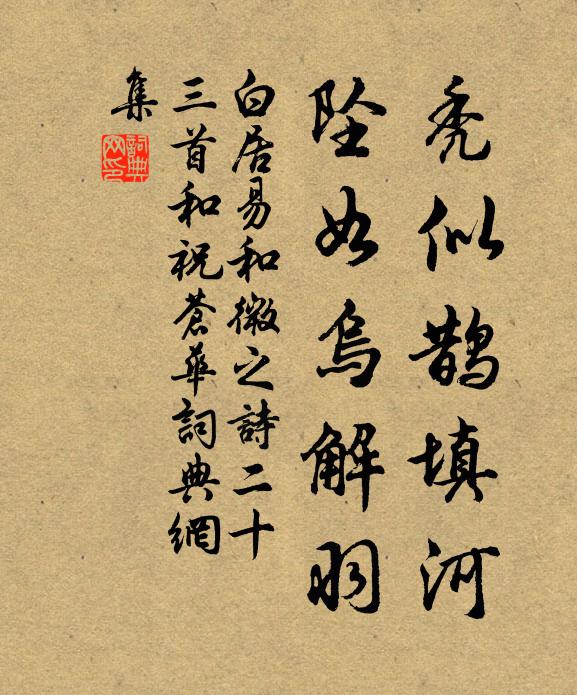 秃似鹊填河
坠如乌解羽
白居易和微之詩二十
三首和祝蒼華詞典網
集
詞典
网印